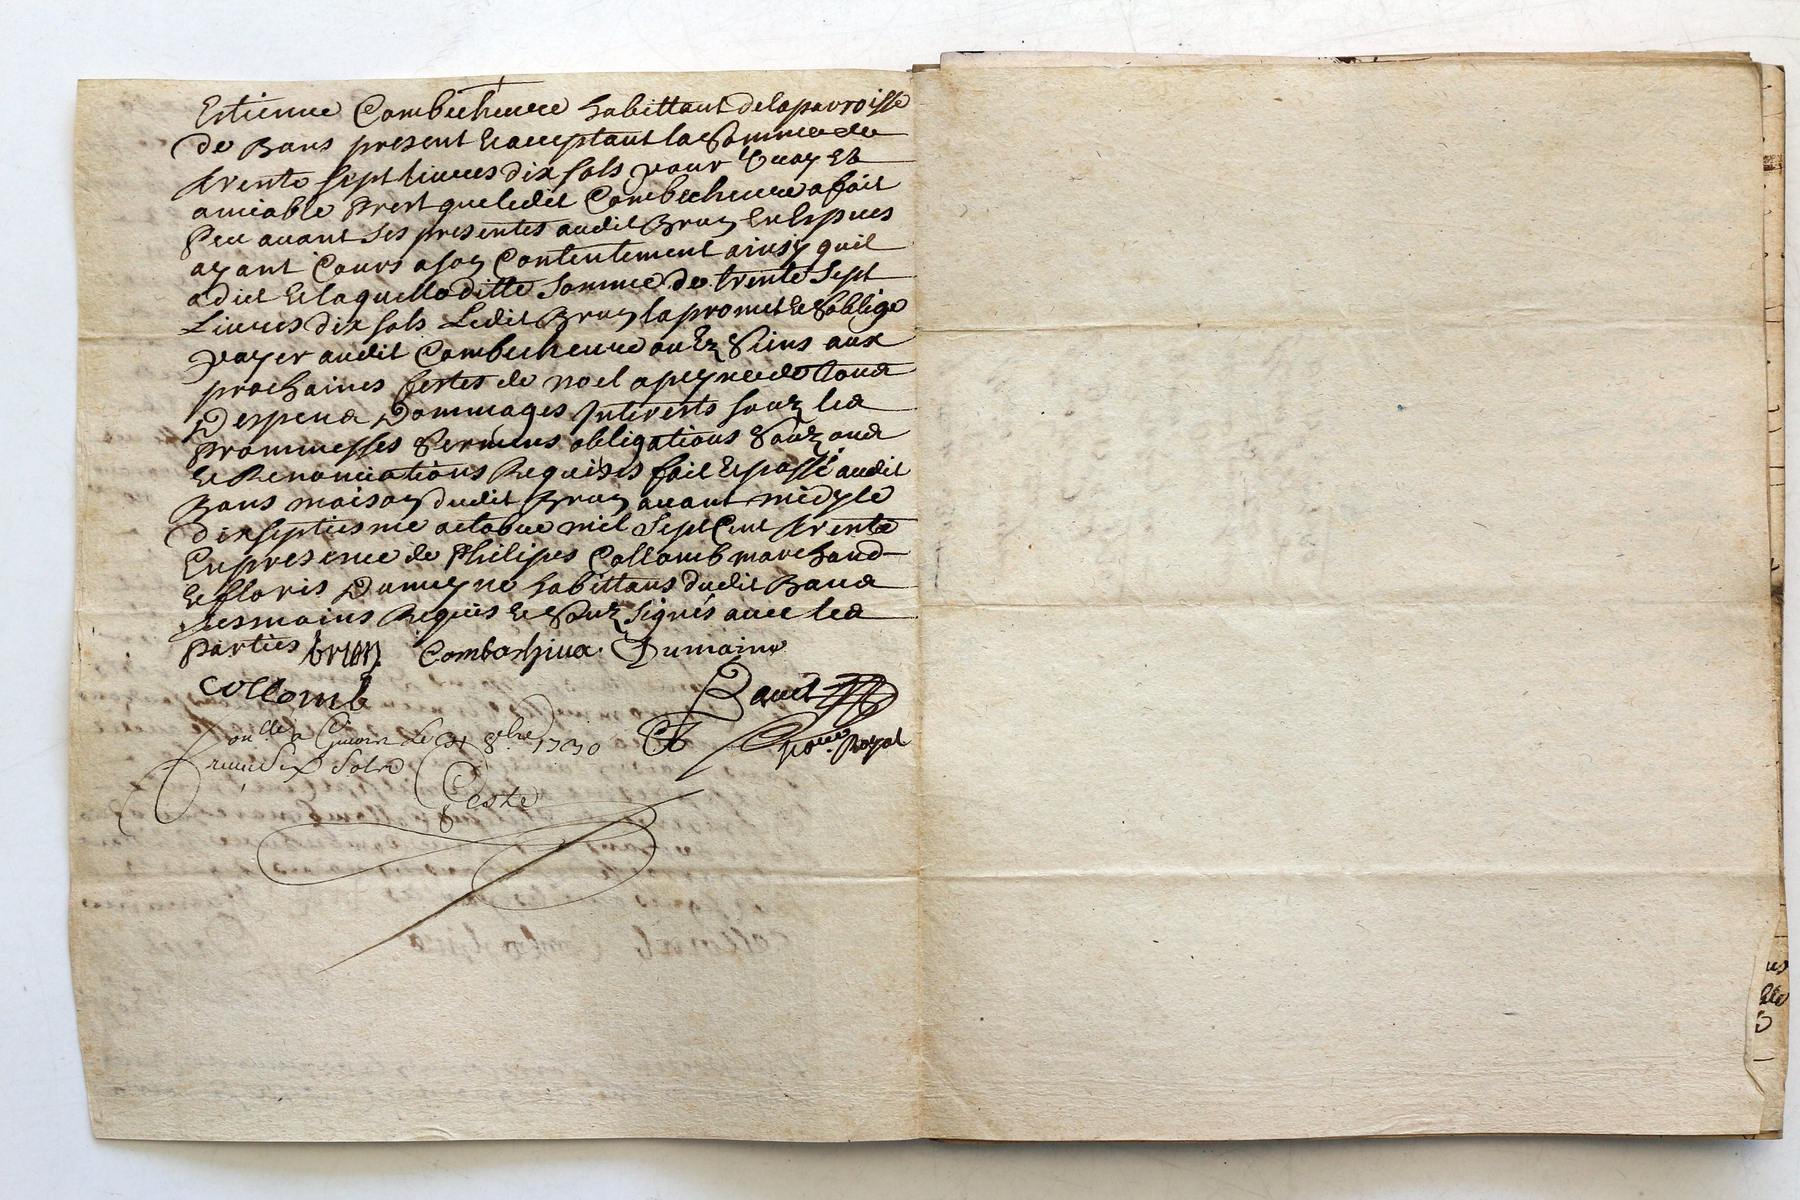 Estienne Combecheure habittant de la parroisse
de Bans present et acceptant la somme de
trente sept livres dix sols pour vray et
amiable prest que ledit Combecheure a fait
peu avant ses presentes audit Brun en Espuces
ayant Cours a son Contentement ainsy quil
a dict et laquelle ditte somme de trente sept
Livres dix sols Ledit Brun la promet et soblige
payer audit Combecheure ou Ez siens aux
prochaines festes de noel a peyne de tous
Despens Dommages Interests souz les
Prommesses sermens obligations souz ons
et Renonciations Requises fait et passé audit
Bans maison dudit Brun avant midy le
dixseptiesme octobre mil sept Cent trente
En presence de Philipes Collomb marchand
et floris Dumeyne habittans dudit Bans
tesmoins Requis et souz signés avec les
parties brun Combashiua Dumaine
collomb
Baud
oullé a Givors le 31 8bre 1730
Not.re Royal
Sols
Coste